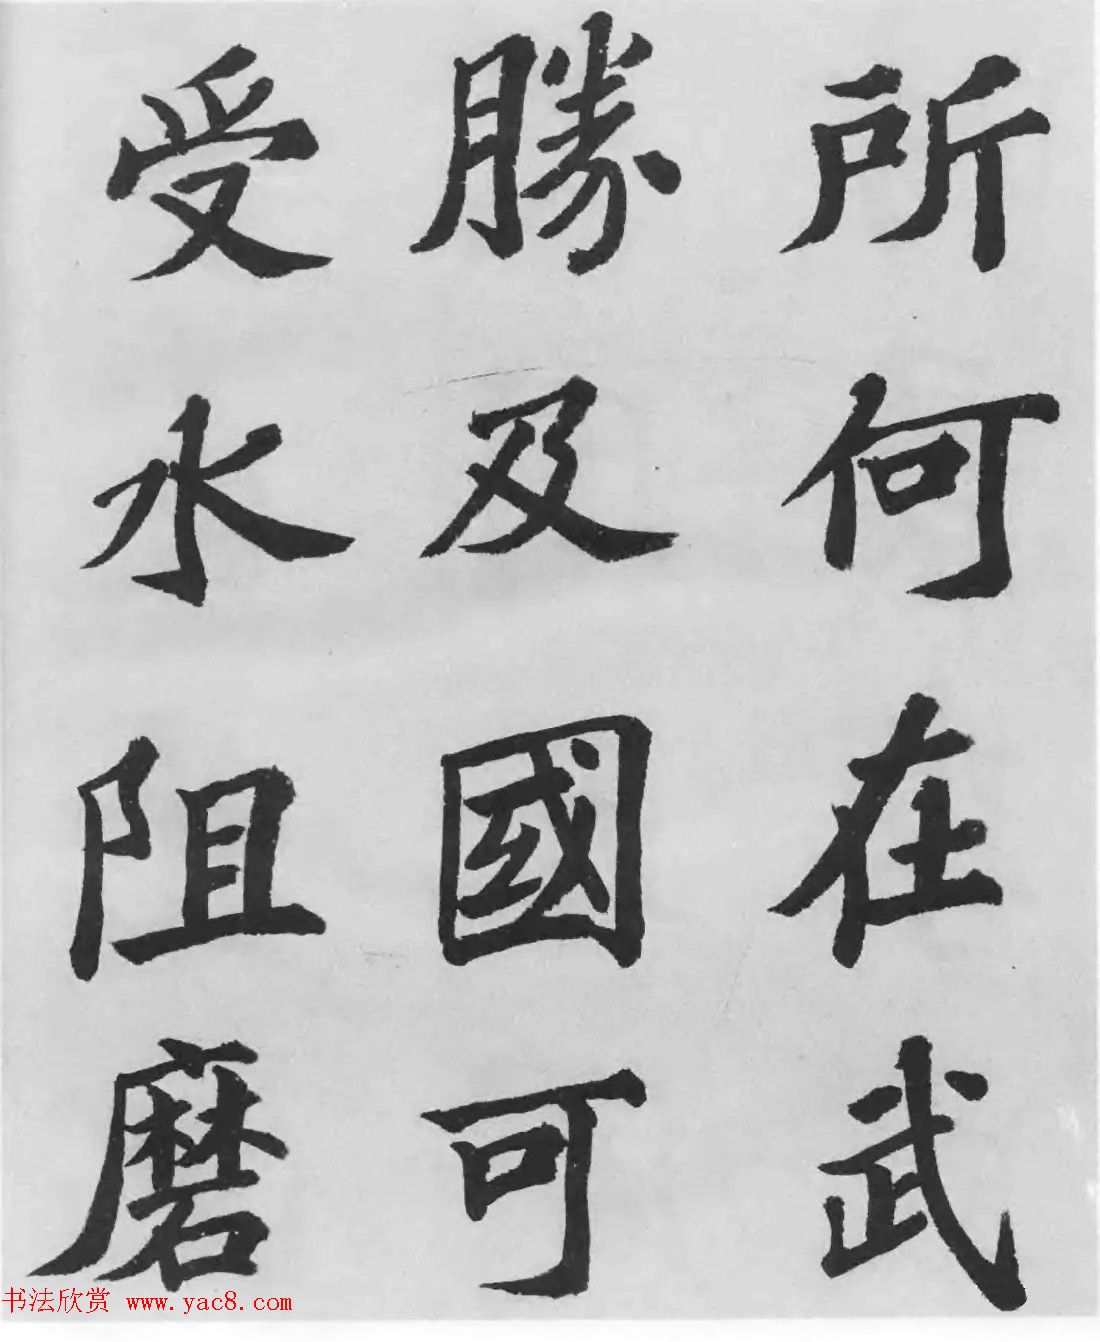 所何在武
勝及國可
受水阻磨
书法欣赏 www.yac8.com